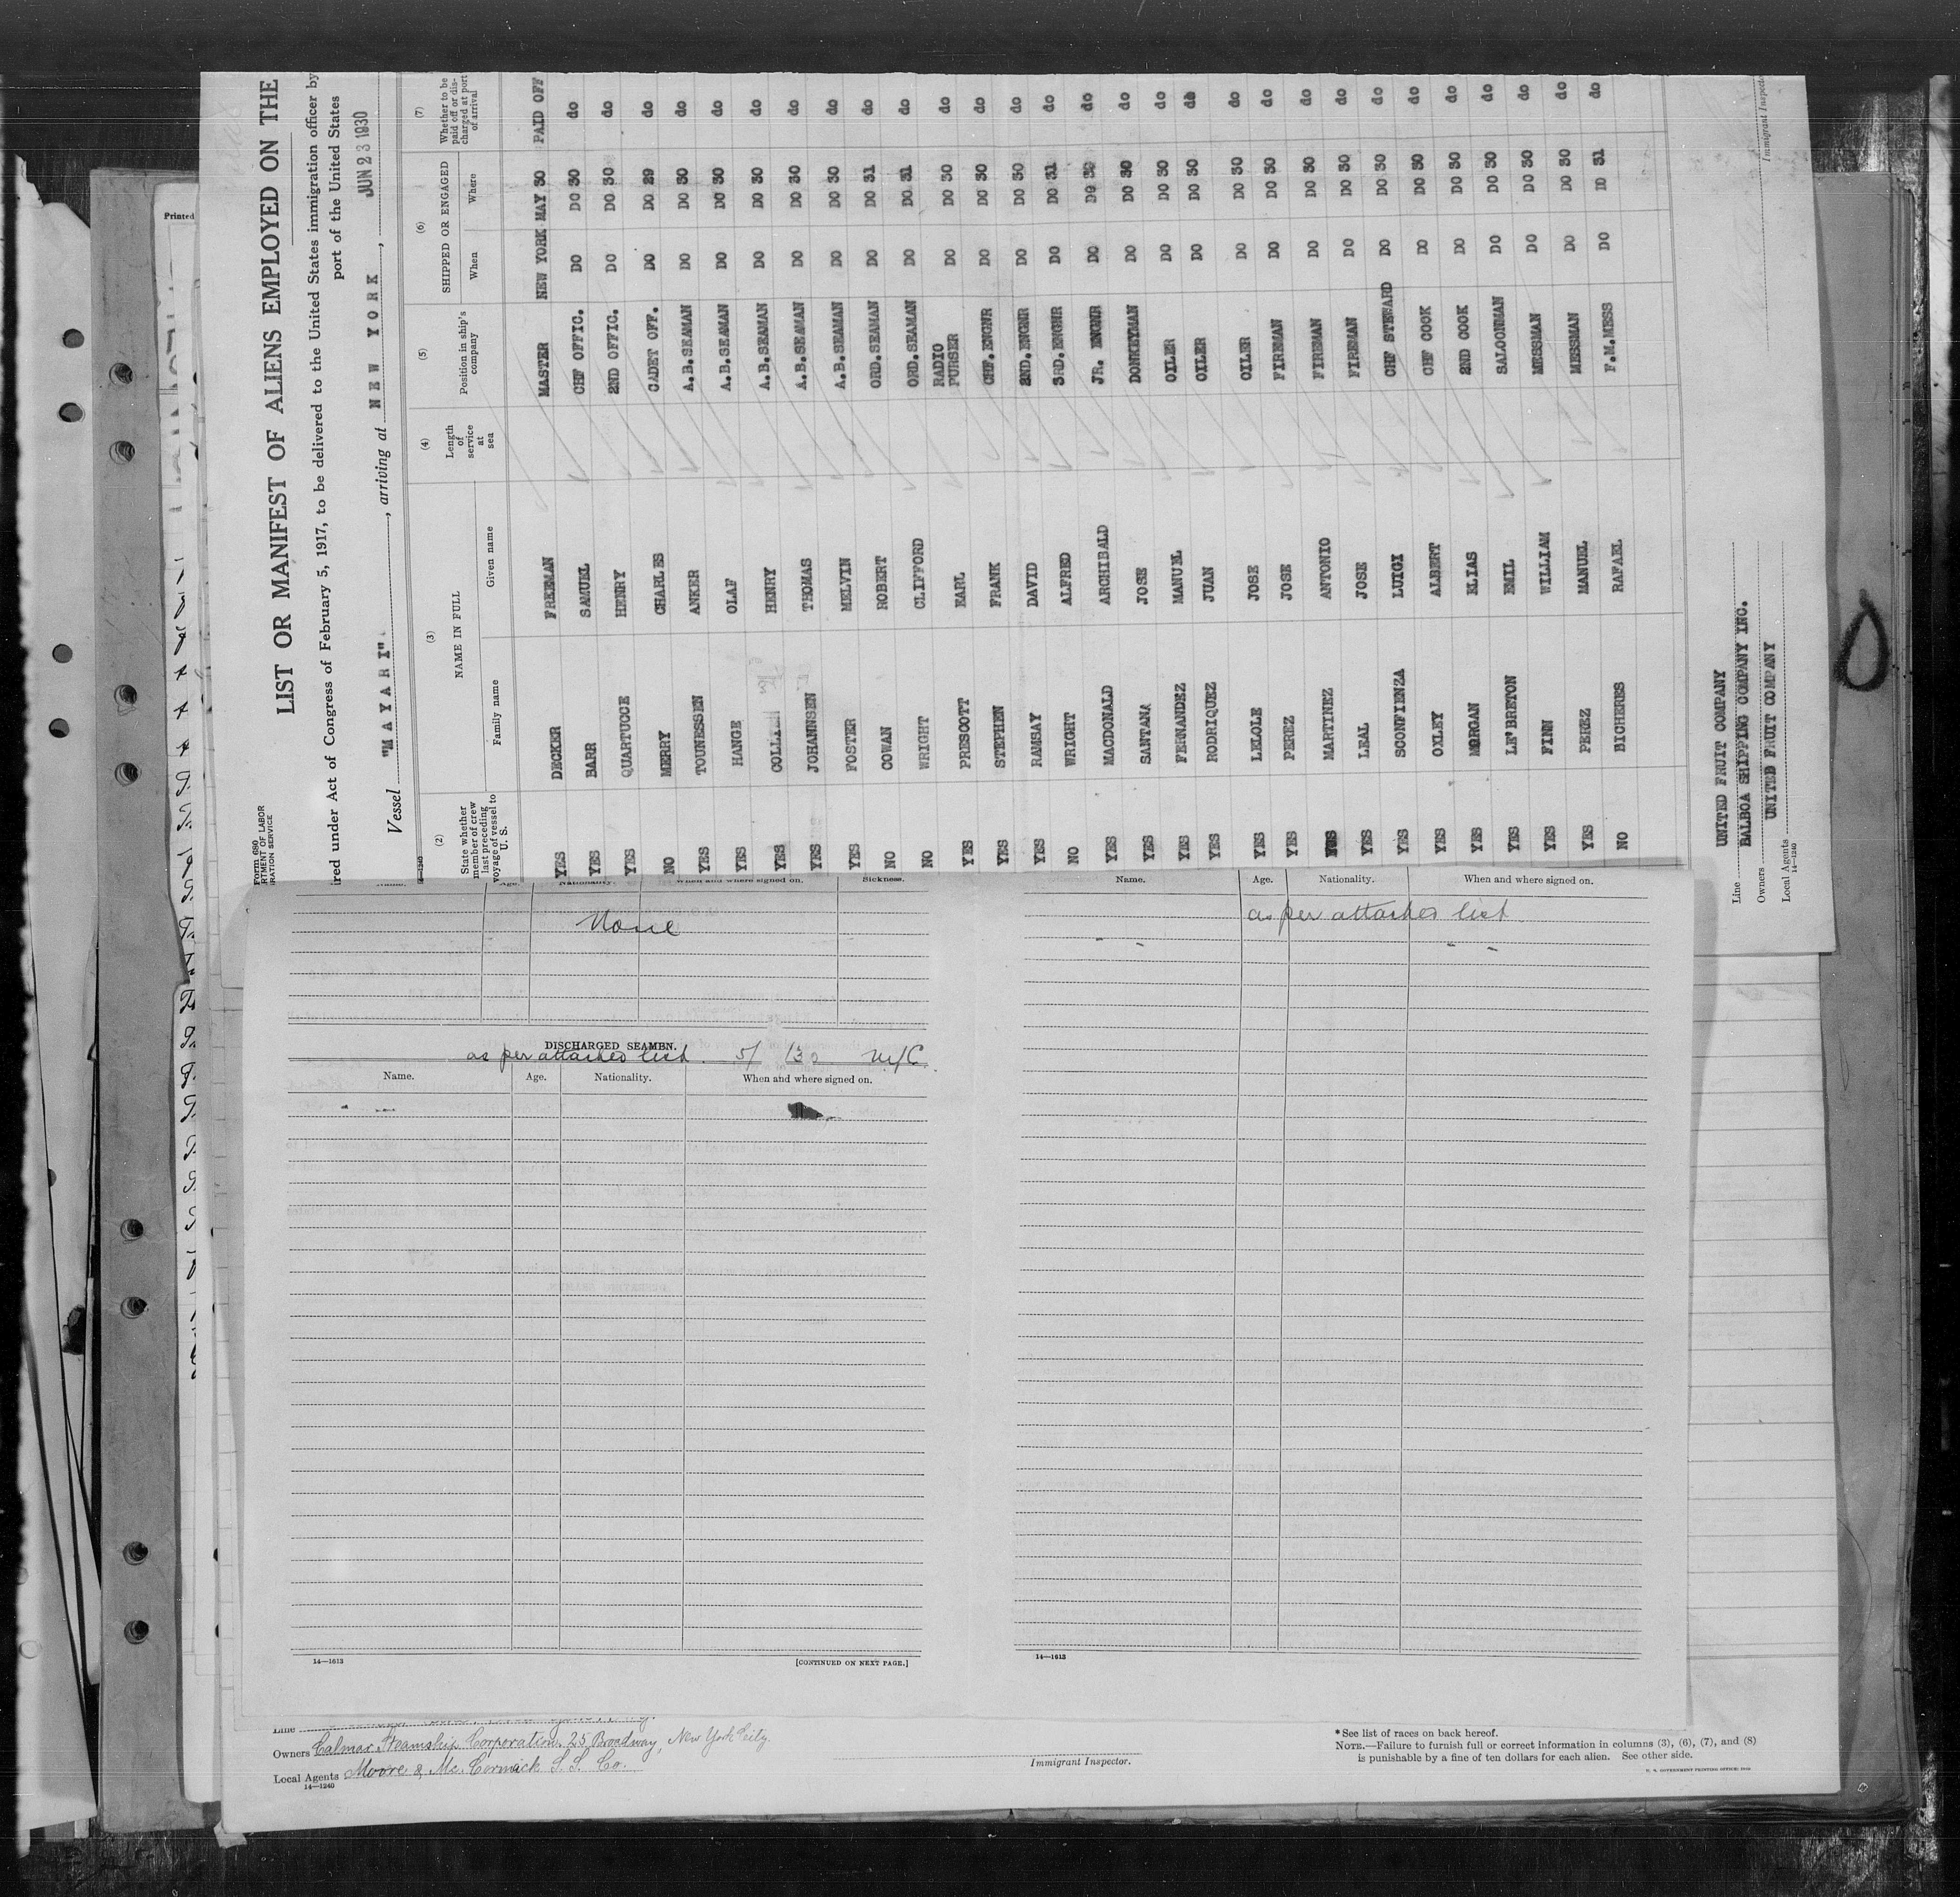 Printed
Form 680
RTMENT OF LABOR
RATION SERVICE
LIST OR MANIFEST OF ALIENS EMPLOYED ON THE
ired under Act of Congress of February 5, 1917, to be delivered to the United States immigration officer by
port of the United States
Vessel "MAYARI", arriving at NEW YORK, JUN 23 1930
(2) (3) (4) (5) (6) (7)
State whether member of crew last preceding voyage of vessel to U. S.
NAME IN FULL
Family name Given name
Length of service at sea
Position in ship's company
SHIPPED OR ENGAGED
When Where
Whether to be paid off or discharged at port of arrival
YES DECKER FREEMAN MASTER NEW YORK MAY 30 PAID OFF
YES BARR SAMUEL CHF OFFIC. DO DO 30 do
YES QUARTUCCE HENRY 2ND OFFIC. DO DO 30 do
NO MERRY CHARLES CADET OFF. DO DO 29 do
YES TOUNESSEN ANKER A.B.SEAMAN DO DO 30 do
YES HANGE OLAF A.B.SEAMAN DO DO 30 do
YES HENRY A.B.SEAMAN DO DO 30 do
YES JOHANNSEN THOMAS A.B.SEAMAN DO DO 30 do
YES FOSTER MELVIN A.B.SEAMAN DO DO 30 do
NO COWAN ROBERT ORD.SEAMAN DO DO 31 do
NO WRIGHT CLIFFORD ORD.SEAMAN DO DO 31 do
YES PRESCOTT EARL RADIO PURSER DO DO 30 do
YES STEPHEN FRANK CHF.ENGNR DO DO 30 do
YES RAMSAY DAVID 2ND.ENGNR DO DO 30 do
NO WRIGHT ALFRED 3RD.ENGNR DO DO 31 do
YES MACDONALD ARCHIBALD JR. ENGNR DO DO do
YES SANTANA JOSE DONKEYMAN DO DO 30 do
YES FERNANDEZ MANUEL OILER DO DO 30 do
YES RODRIQUEZ JUAN OILER DO DO 30 do
YES LELOLE JOSE OILER DO DO 30 do
YES PEREZ JOSE FIREMAN DO DO 30 do
MARTINEZ ANTONIO FIREMAN DO DO 30 do
YES LEAL JOSE FIREMAN DO DO 30 do
YES SCONFIENZA LUIGI CHF STEWARD DO DO 30 do
YES OXLEY ALBERT CHF COOK DO DO 30 do
YES MORGAN ELIAS 2ND COOK DO DO 30 do
YES LE'BRETON EMIL SALOONMAN DO DO 30 do
YES FINN WILLIAM MESSMAN DO DO 30 do
YES PEREZ MANUEL MESSMAN DO DO 30 do
NO BICHERES RAFAEL F.M.MESS DO D 31 do
Line UNITED FRUIT COMPANY
Owners BALBOA SHIPPING COMPANY INC.
Local Agents UNITED FRUIT COMPANY
14—1240
Immigrant Inspecto
Name. Age. Nationality. When and where signed on. Sickness.
None
DISCHARGED SEAMEN.
as per attached list.
Name. Age. Nationality. When and where signed on.
14—1613 [CONTINUED ON NEXT PAGE.]
Name. Age. Nationality. When and where signed on.
as per attached list
14—1613
Line
Owners Calmar Steamship Corporation. 25 Broadway, New York City.
Local Agents Moore & Mc. Cormack S. S. Co.
14—1240
Immigrant Inspector.
*See list of races on back hereof.
NOTE.—Failure to furnish full or correct information in columns (3), (6), (7), and (8)
is punishable by a fine of ten dollars for each alien. See other side.